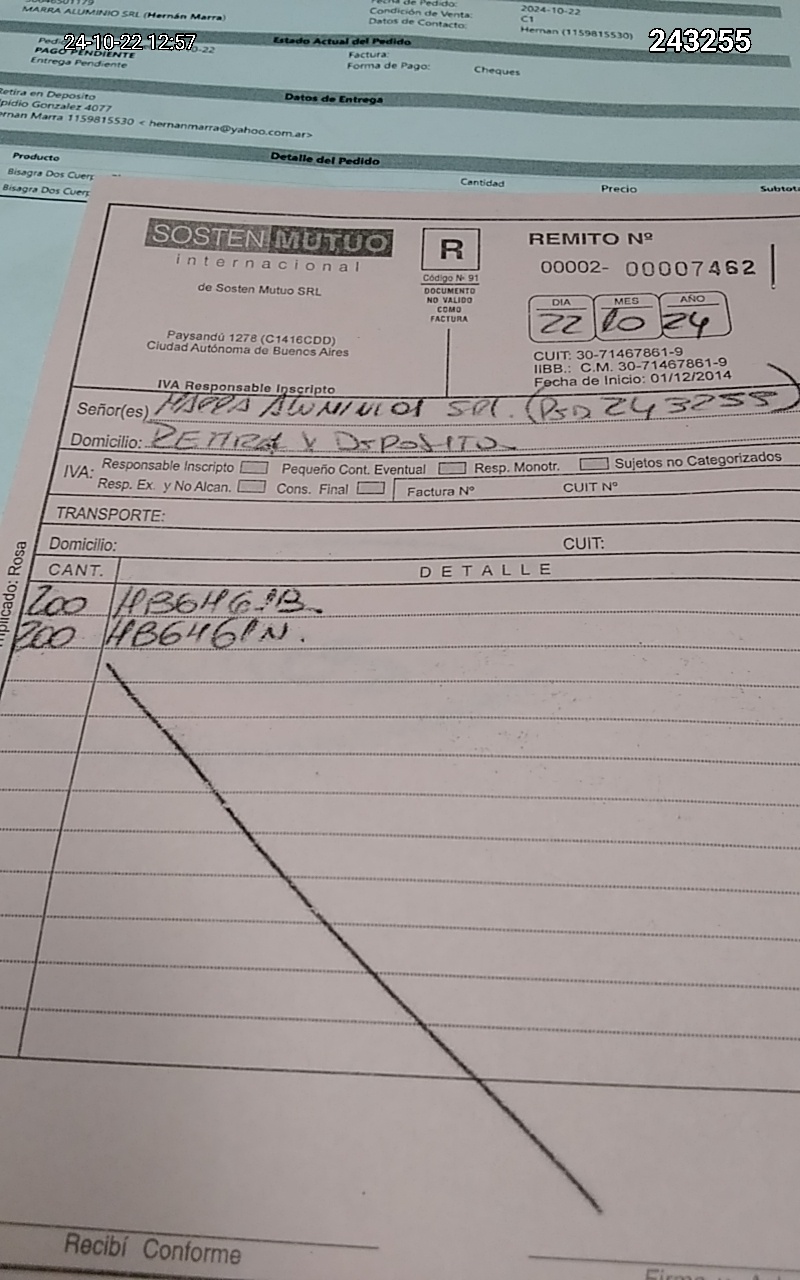 MARRA ALUMINIO SRL (Hernán Marra)
Fecha de Pedido: 2024-10-22
Condición de Venta: C1
Datos de Contacto: Hernan (1159815530)
24-10-22 12:57
243255
Estado Actual del Pedido
PAGO PENDIENTE
Factura:
Entrega Pendiente
Forma de Pago: Cheques
Datos de Entrega
Retira en Deposito
pidio Gonzalez 4077
ernan Marra 1159815530 < hernanmarra@yahoo.com.ar>
Detalle del Pedido
Producto Cantidad Precio Subtota
Bisagra Dos Cuerp
Bisagra Dos Cuerp
SOSTEN MUTUO
internacional
de Sosten Mutuo SRL
Paysandú 1278 (C1416CDD)
Ciudad Autónoma de Buenos Aires
IVA Responsable Inscripto
R
Código Nº 91
DOCUMENTO
NO VALIDO
COMO
FACTURA
REMITO Nº
00002- 00007462
DIA MES AÑO
22 10 24
CUIT: 30-71467861-9
IIBB.: C.M. 30-71467861-9
Fecha de Inicio: 01/12/2014
Señor(es) MARRA ALUMINIO SRL. (PED 243255)
Domicilio: RETIRA X DEPOSITO
IVA: Responsable Inscripto Pequeño Cont. Eventual Resp. Monotr. Sujetos no Categorizados
Resp. Ex. y No Alcan. Cons. Final Factura Nº CUIT Nº
TRANSPORTE:
Domicilio: CUIT:
CANT. DETALLE
200 HB646/B.
200 HB646/N.
plicado: Rosa
Recibí Conforme